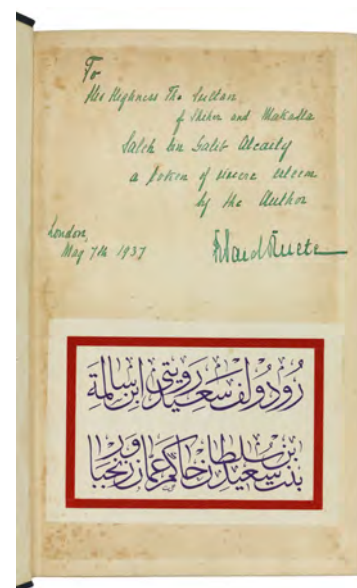 To
His Highness The Sultan
of Shehr and Makalla
Saleh bin Galib Alcaity
a token of sincere esteem
by the Author
London,
May 7th 1937
R Said Ruete
رودولف سعيد رويتي ابن سالمة
بنت سعيد بن سلطان حاكم عمان وزنجبار